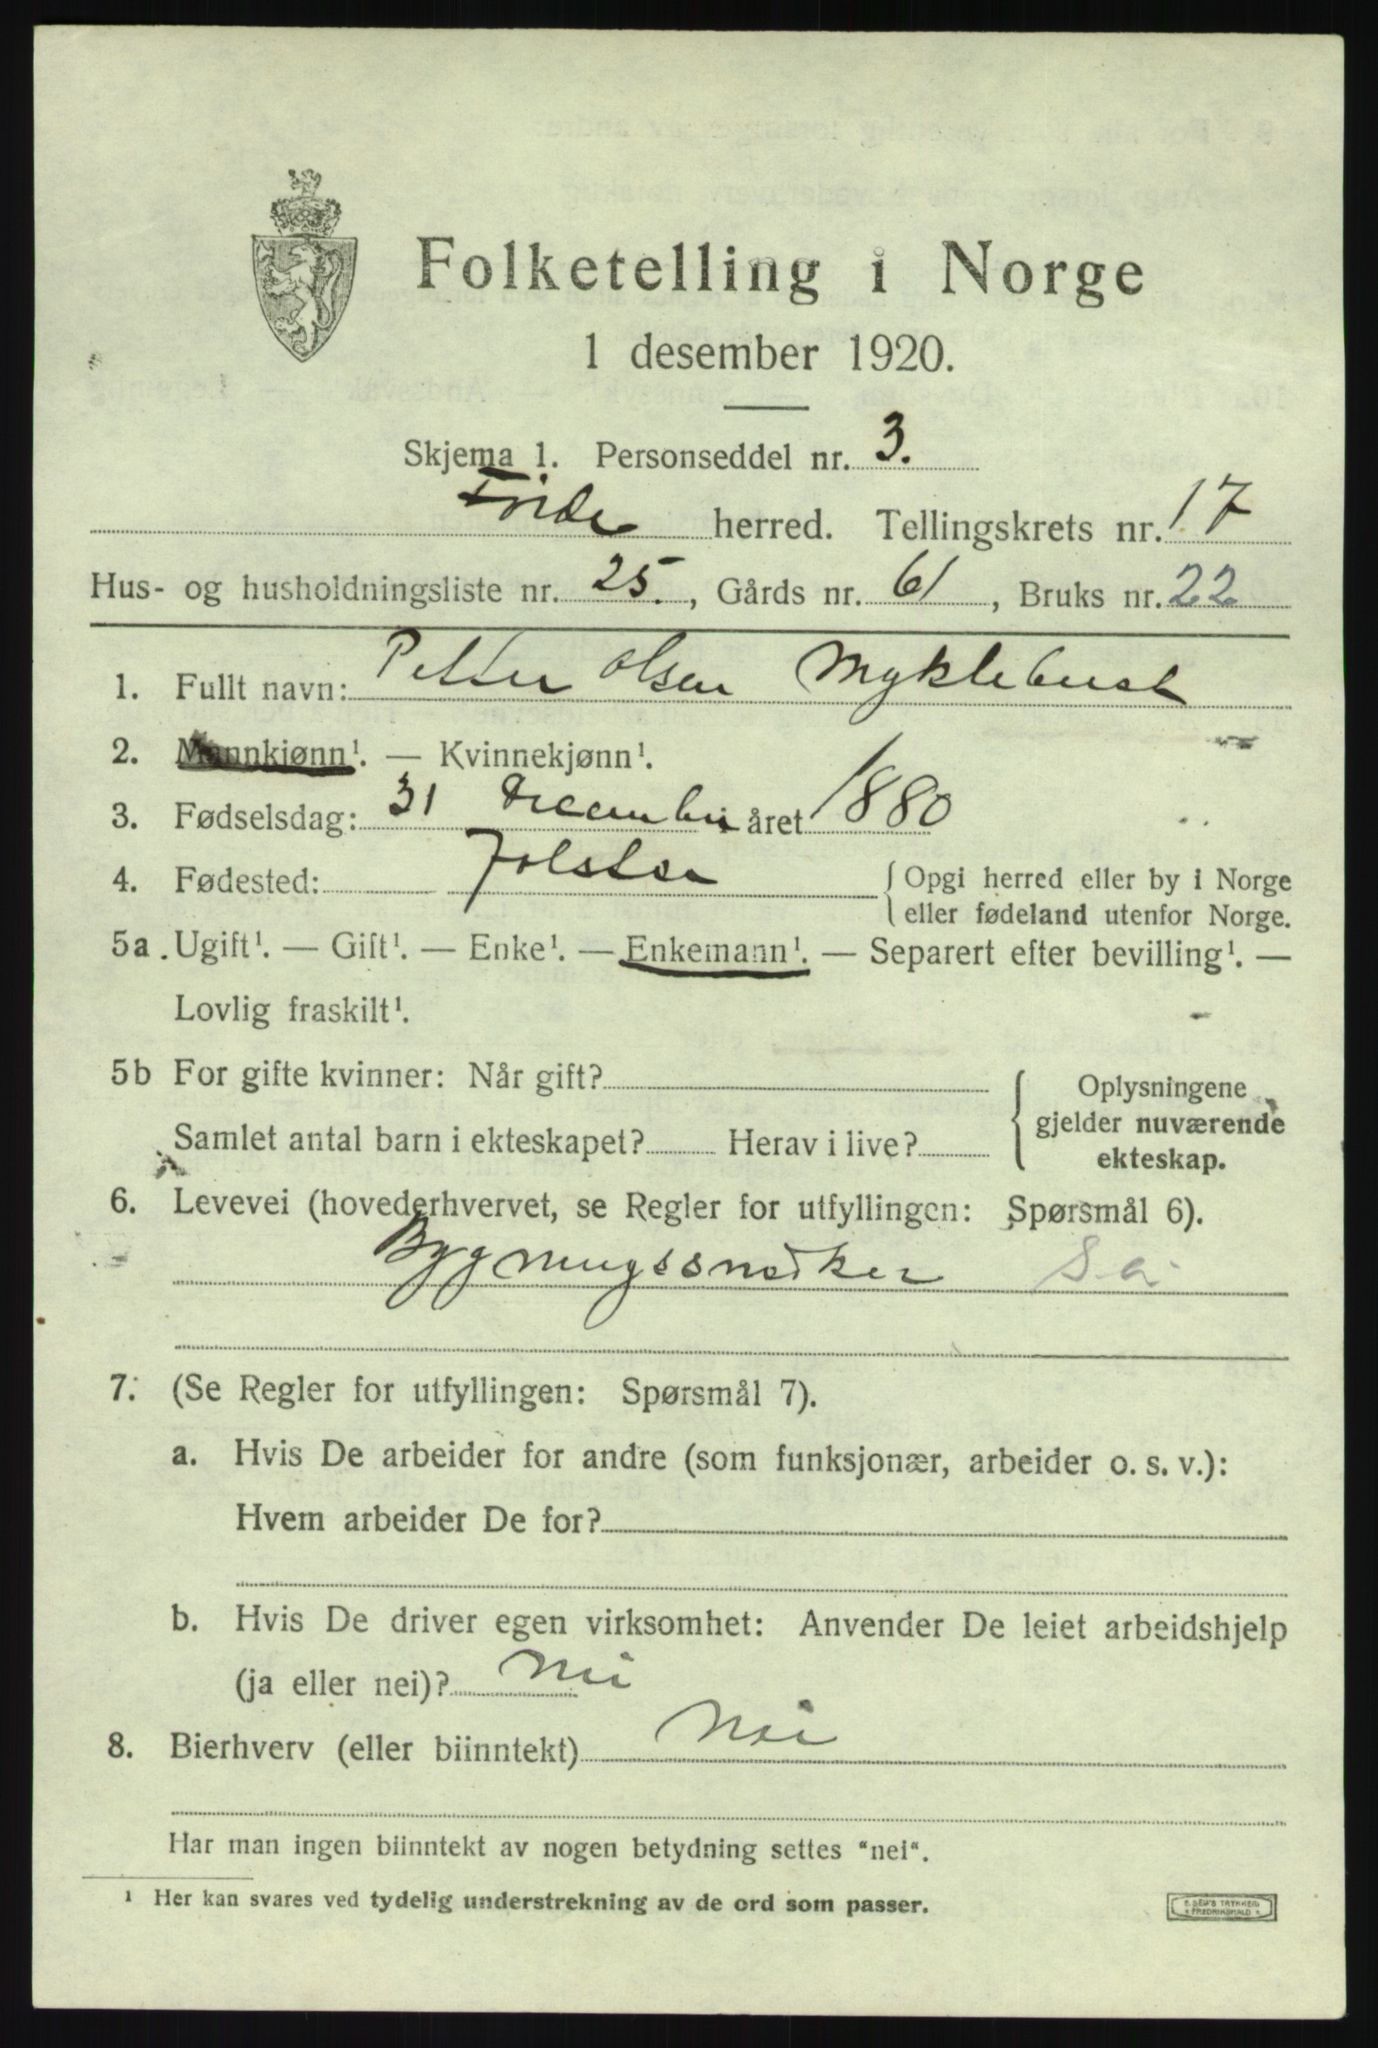 Folketelling i Norge
1 desember 1920.
Skjema 1. Personseddel nr. 3.
Førde herred. Tellingskrets nr. 17
Hus- og husholdningsliste nr. 25., Gårds nr. 61, Bruks nr. 22
1. Fullt navn: Petter Olsen Myklebust
2. Mannkjønn¹. — Kvinnekjønn¹.
3. Fødselsdag: 31 December i året 1880
4. Fødested: Jolster { Opgi herred eller by i Norge
eller fødeland utenfor Norge.
5a. Ugift¹. — Gift¹. — Enke¹. — Enkemann¹. — Separert efter bevilling¹. —
Lovlig fraskilt¹.
5b For gifte kvinner: Når gift?
Samlet antal barn i ekteskapet? Herav i live?
{ Oplysningene
gjelder nuværende
ekteskap.
6. Levevei (hovederhvervet, se Regler for utfyllingen: Spørsmål 6).
Bygningssnedker S.a.
7. (Se Regler for utfyllingen: Spørsmål 7).
a. Hvis De arbeider for andre (som funksjonær, arbeider o. s. v.):
Hvem arbeider De for?
b. Hvis De driver egen virksomhet: Anvender De leiet arbeidshjelp
(ja eller nei)? Nei
8. Bierhverv (eller biinntekt) Nei
Har man ingen biinntekt av nogen betydning settes "nei".
¹ Her kan svares ved tydelig understrekning av de ord som passer.